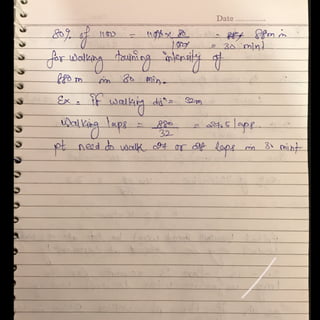 Date
80% of 1100 = 1100 x 80 / 100 = 880 m in
= 30 min
for walking training intensity of
880 m in 30 min.
Ex. if walking = 32m
Walking laps = 880/32 = 27.5 laps.
pt need to walk 27 or 28 laps in 30 mint